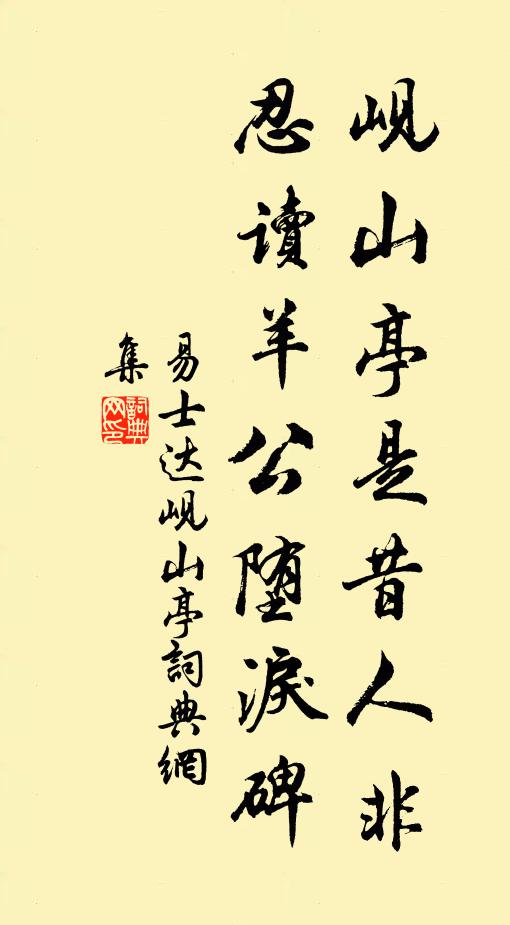 岘山亭是昔人非
忍讀羊公堕淚碑
易士达岘山亭詞典網
集
詞典网印